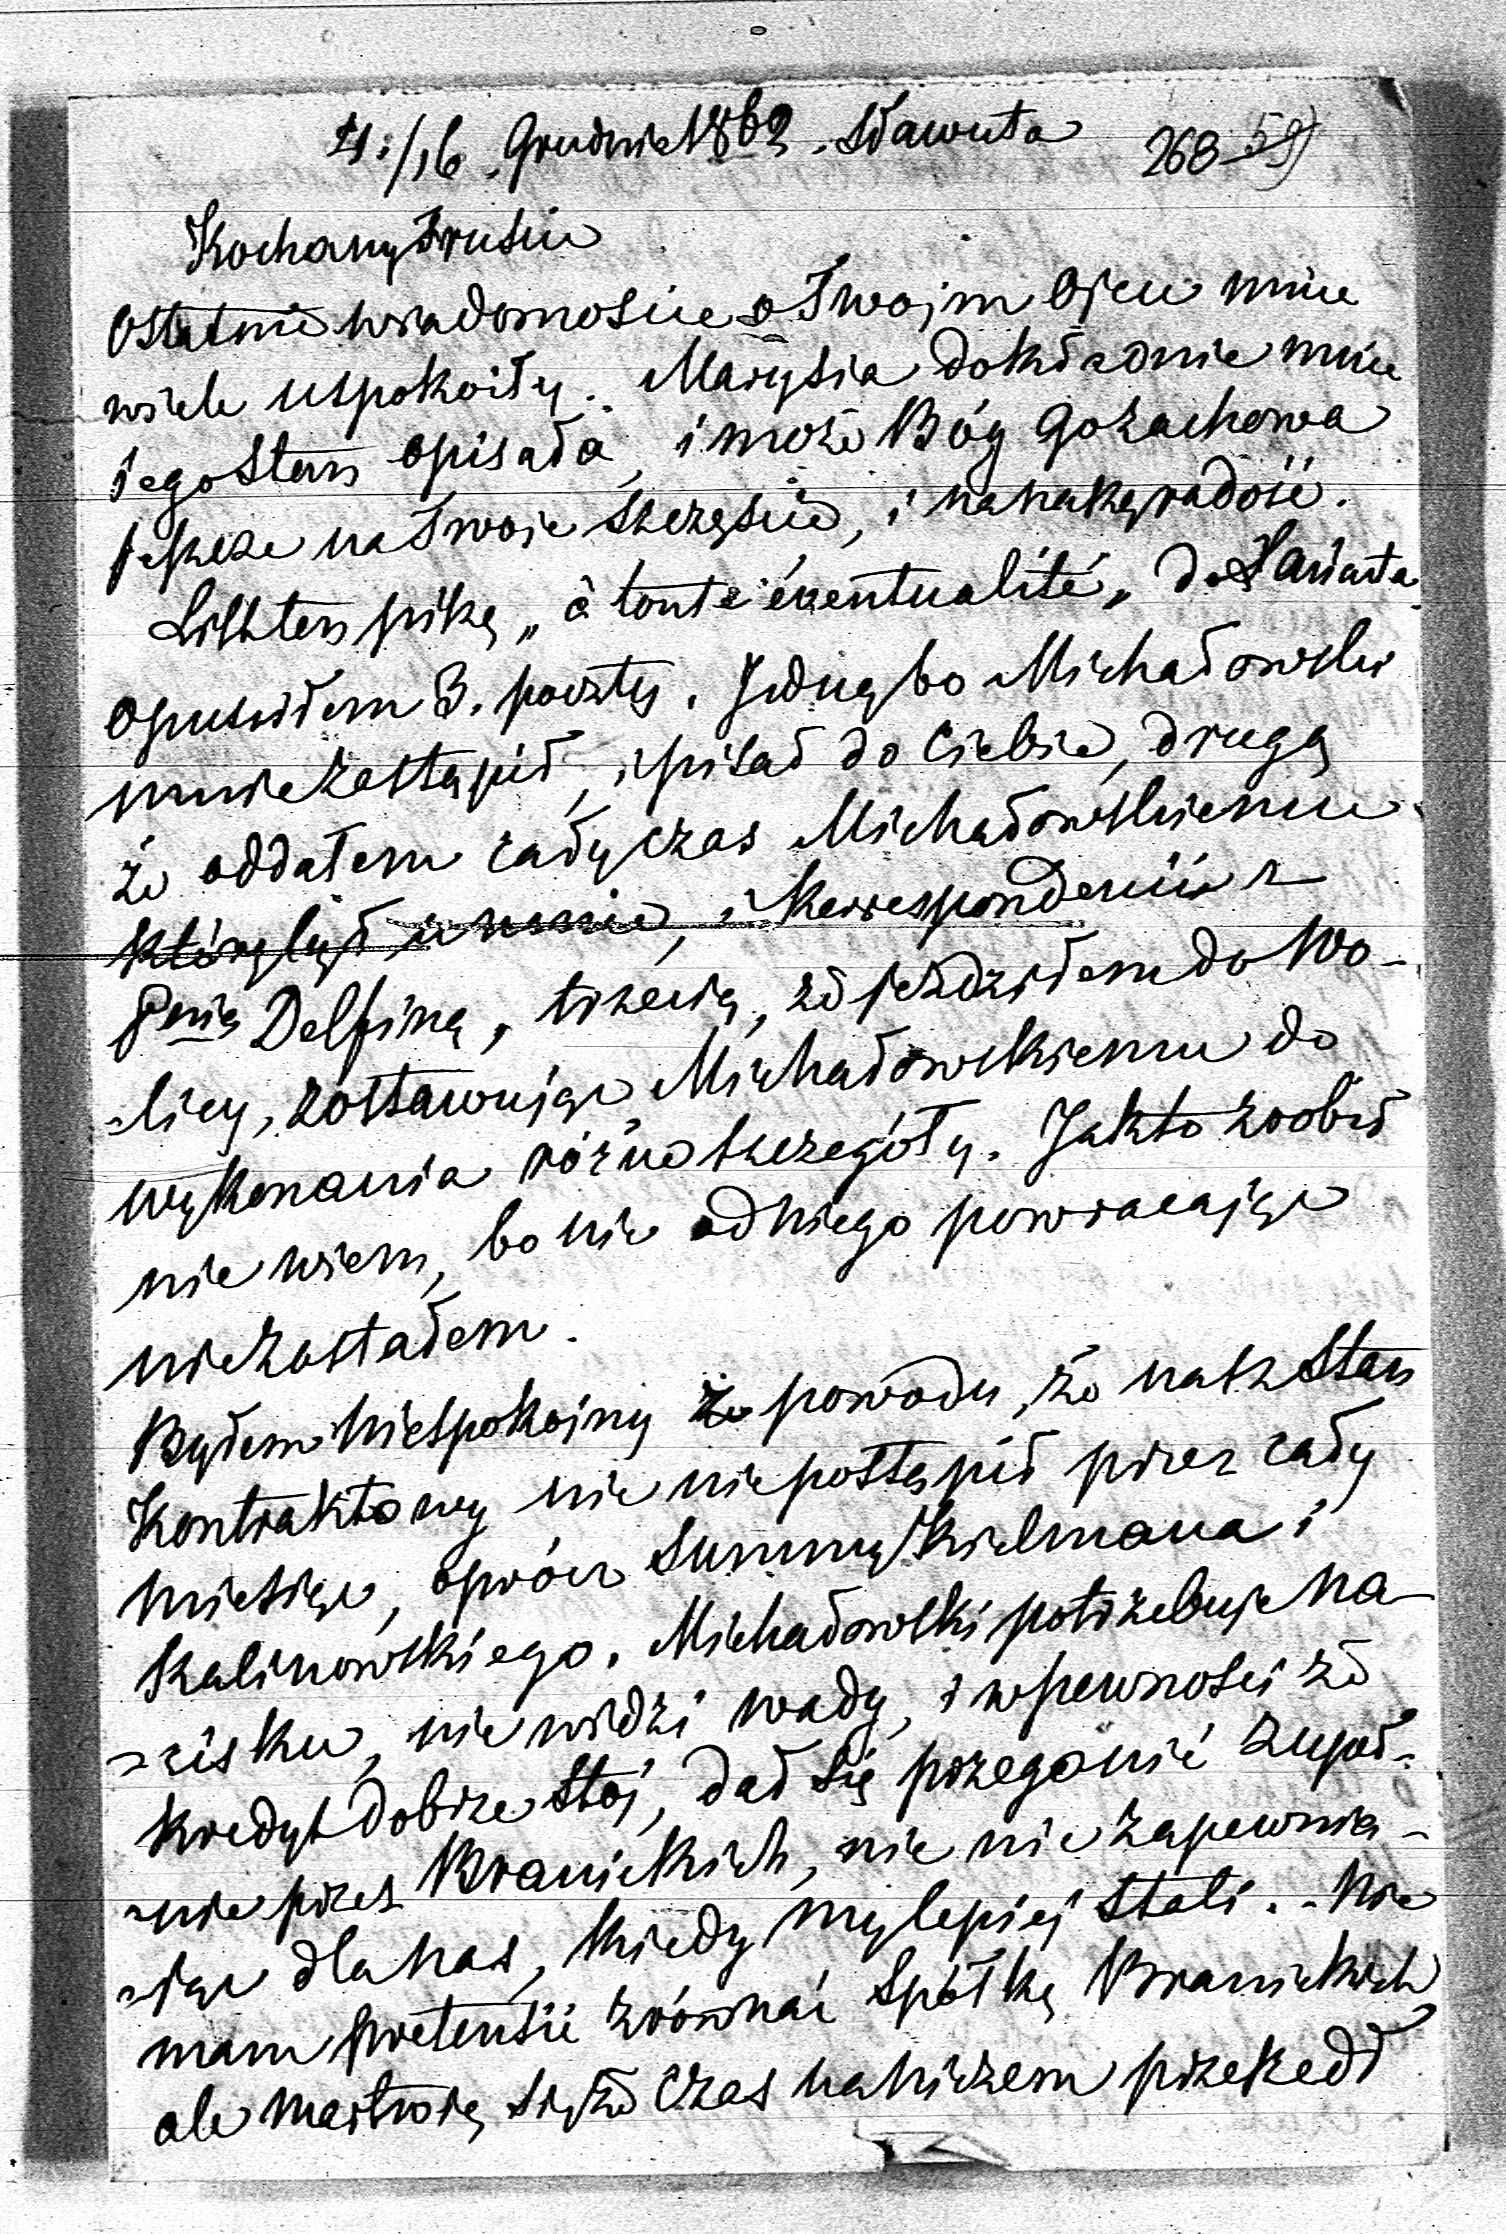 4./16. Grudnia 1862. Sławuta 268 59)
Kochany Brusiu
Ostatnie wiadomoście o Twojm Ojcu mnie
wiele uspokoiły. Marysia dokładnie mnie
Jego Stan opisała, i może Bóg Go zachowa
jeszcze na Twoje szczęście, i na naszą radość.
List ten piszę „à toute éventualité„ do
opuściłem 3. poczty. Jedną bo Michałowski
mnie zastąpił, i pisał do Ciebie, drugą
że oddałem cały czas Michałowskiemu
który był u mnie, i Korrespondencii z
Pnią Delfiną, trzecią, że jeździłem do Wo-
-licy, zostawując Michałowskiemu do
wykonania różne szczegóły. Jak to zrobił
nie wiem, bo nic od niego powracając
nie zastałem.
Byłem niespokojny z powodu, że nasz Stan
Kontraktowy nic nie postąpił przez cały
miesiąc, oprócz Summy Kielmana i
Kalinowskiego. Michałowski potrzebuje na-
-cisku, nie widzi wady, i w pewności że
kredyt dobrze stoj, dał się przegonić zupeł-
-nie przez Branickich, nic nie zapewnia-
-jąc dla nas, kiedy my lepiej stali. - Nie
mam pretensii zrównać Spółkę Branickich,
ale martwię się że czas na niczem przeszedł